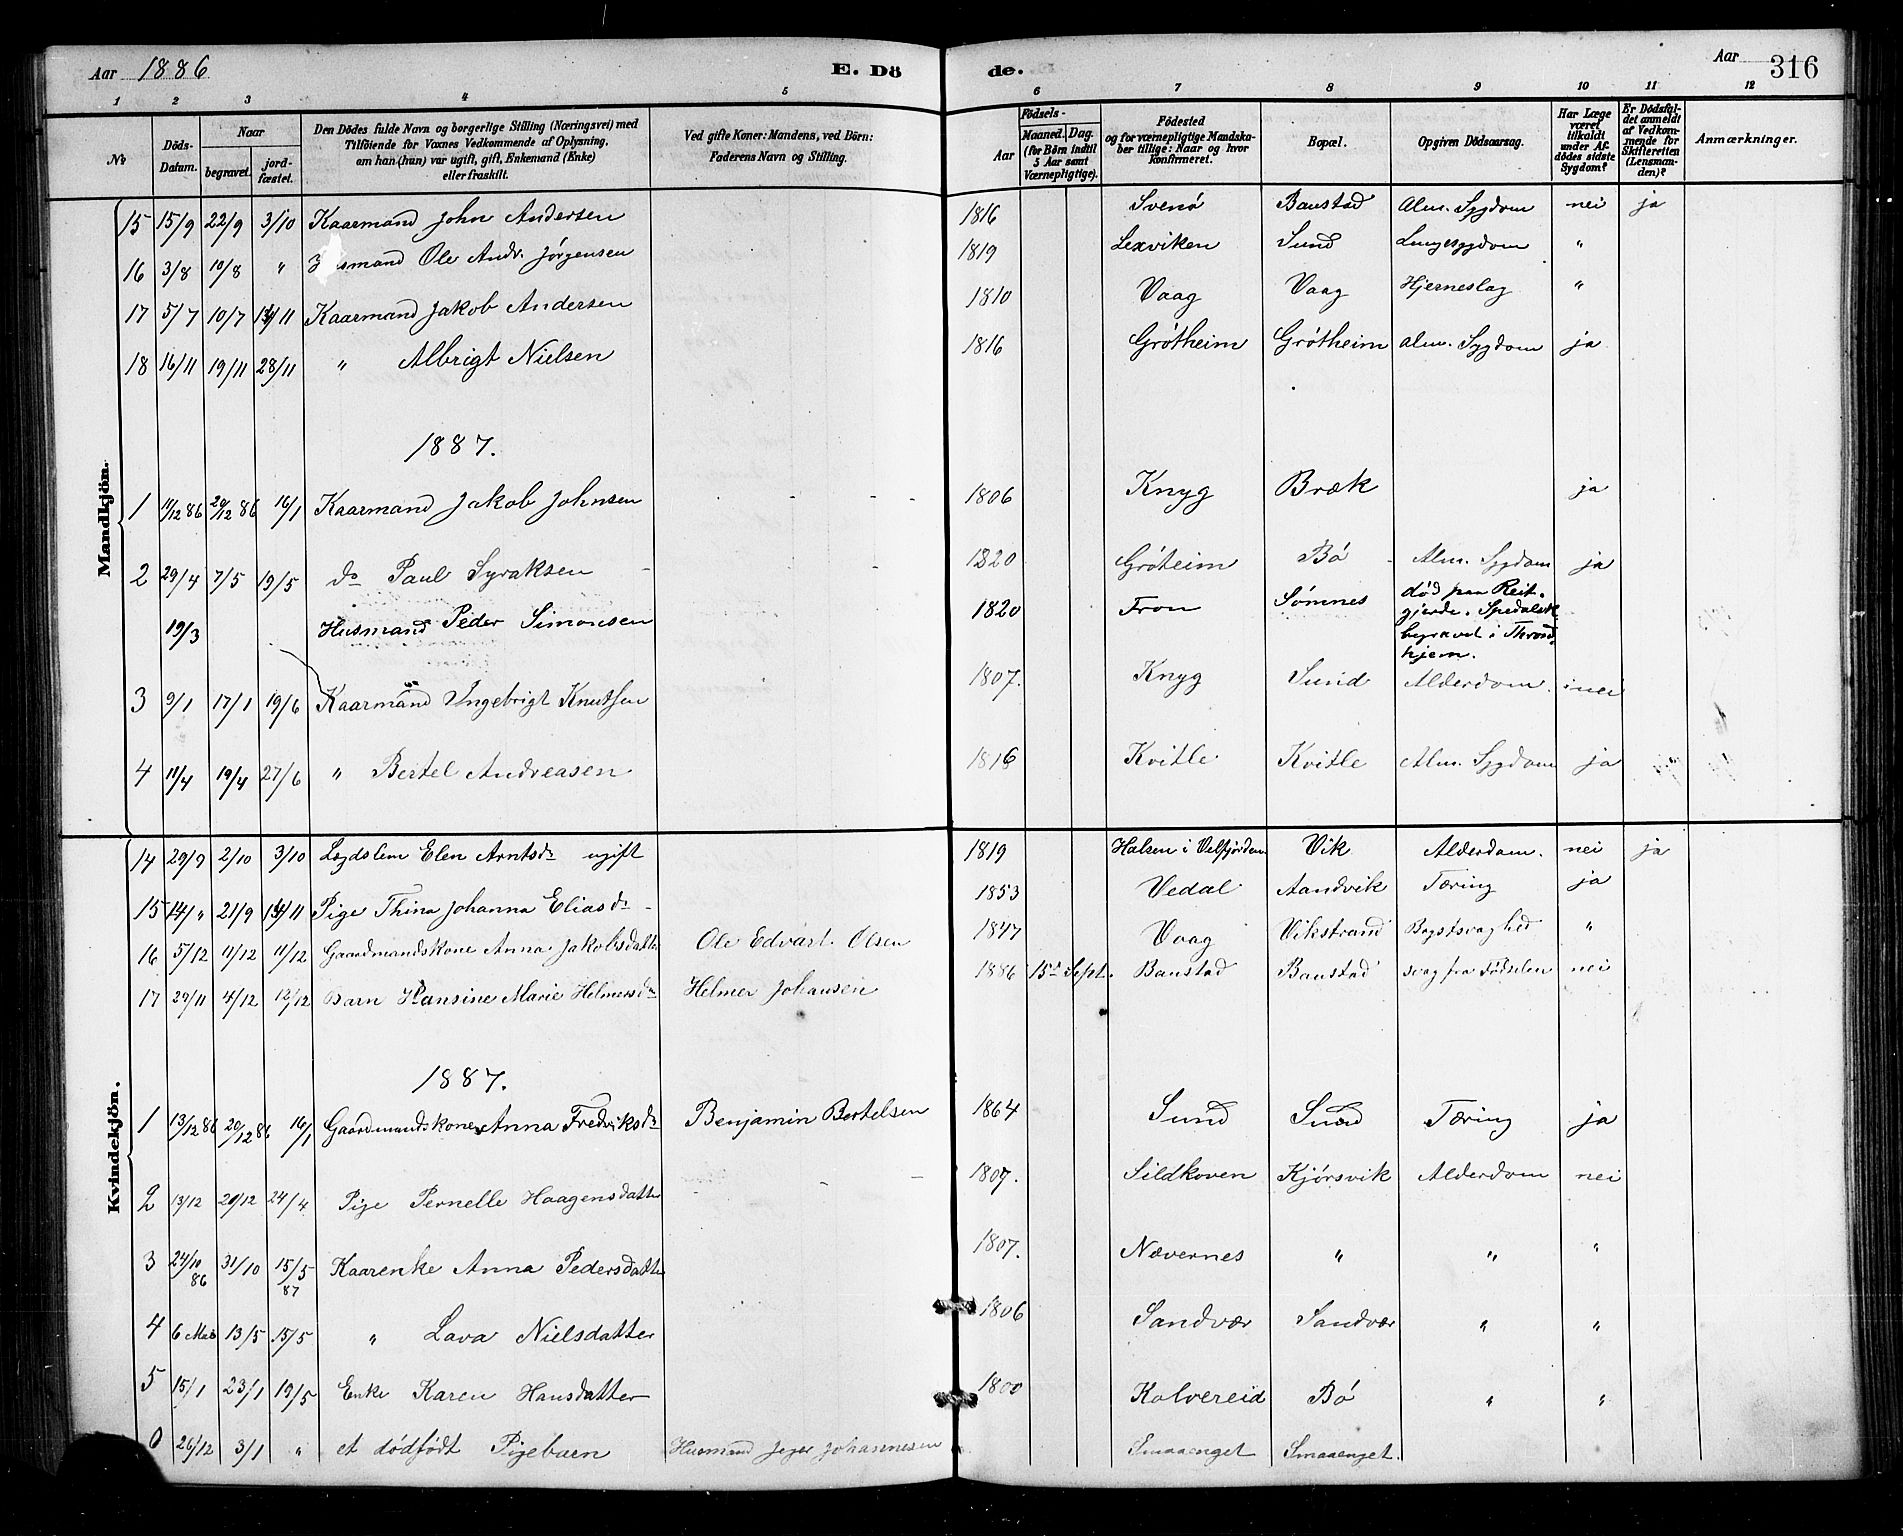 Aar 1886 E. Dö de. Aar 316
1 2 3 4 5 6 7 8 9 10 11 12
No Döds-Datum. Naar begravet. jordfæstet. Den Dödes fulde Navn og borgerlige Stilling (Næringsvei) med Tilföiende for Voxnes Vedkommende af Oplysning, om han (hun) var ugift, gift, Enkemand (Enke) eller fraskilt. Ved gifte Koner: Mandens, ved Börn: Faderens Navn og Stilling. Födsels- Aar Maaned. Dag. (for Börn indtil 5 Aar samt Værnepligtige). Födested og for værnepligtige Mandskaber tillige: Naar og hvor Konfirmeret. Bopæl. Opgiven Dödsaarsag. Har Læge været tilkaldt under Afdödes sidste Sygdom? Er Dödsfaldet anmeldt af Vedkommende for Skifteretten (Lensmanden)? Anmærkninger.
Mandkjön.
15 15/9 22/9 3/10 Kaarmand John Andersen 1816 Svenö Baustad Alm. Sygdom nei ja
16 3/8 10/8 " Husmand Ole Andr. Jørgensen 1819 Lexviken Sund Lungesygdom "
17 5/7 10/7 14/11 Kaarmand Jakob Andersen 1810 Vaag Vaag Hjerneslag "
18 16/11 19/11 28/11 " Albrigt Nielsen 1816 Grötheim Grötheim alm. Sygdom ja
1887.
1 11/12 86 20/12 86 16/1 Kaarmand Jakob Johnsen - - - 1806 Knyg Bræk ja
2 29/4 7/5 19/5 do Paul Syraksen - 1820 Gröteim Bö Alm. Sygdom ja
19/3 Husmand Peder Simonsen 1820 Fron Sömnes død paa Reit-
gjerde. Spedalsk
begravet i Thrond
hjem.
3 9/1 17/1 19/6 Kaarmand Ingebrigt Knutsen 1807. Knyg Sund Alderdom. nei
4 11/4 19/4 27/6 " Bertel Andreasen 1816 Kvitle Kvitle Alm. Sygdom ja
Kvindekjön.
14 29/9 2/10 3/10 Lægdslem Elen Arntsdr ugift 1819 Halsen i Velfjorden Vik Alderdom. nei ja
15 14/" 21/9 14/11 Pige Thina Johanna Eliasdr - 1853 Vedal Aandvik Tæring ja
16 5/12 11/12 11/12 Gaardmandskone Anna Jakobsdatter Ole Edvart Olsen 1847 Vaag Vikstrand Brystsvaghed "
17 29/11 4/12 12/12 Barn Hansine Marie Helmersdr Helmer Johansen 1886 15de Sept. Baustad Baustad svag fra Fødselen nei
1887.
1 13/12 86 20/12 86 16/1 Gaardmandskone Anna Fredriksdr Benjamin Bertelsen 1864 Sund Sund Tæring ja
2 13/12 20/12 24/4 Pige Pernelle Haagensdatter - - 1807. Sildkoven Kjörsvik Alderdom nei
3 24/10 86 31/10 15/5 87 Kaarenke Anna Pedersdatter 1807. Nævernes " " "
4 6 Mai 13/5 15/5 " Lava Nielsdatter 1806 Sandvær Sandvær " "
5 15/1 23/1 19/5 Enke Karen Hansdatter 1800 Kolvereid Bö " "
0 26/12 3/1 " et dödfödt Pigebarn Husmand Jeger Johannesen Smaaenget Smaaenget.